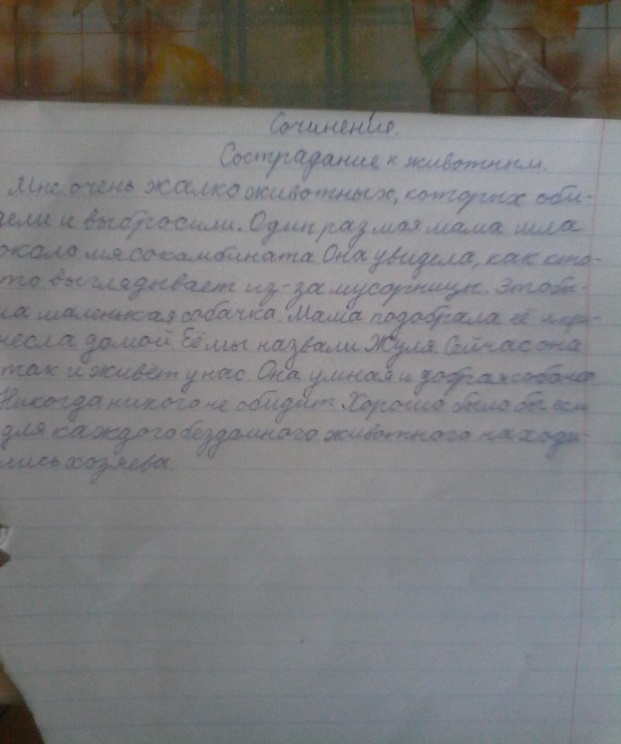 Сочинение.
Сострадание к животным.
Мне очень жалко животных, которых оби-
дели и выбросили. Один раз моя мама шла
около мясокамбината Она увидела, как кто-
то выглядывает из-за мусорницы. Это бы-
ла маленькая собачка. Мама подобрала её и при-
несла домой. Её мы назвали Жуля. Сейчас она
так и живёт у нас. Она умная и добрая собака
Никогда никого не обидит. Хорошо было бы если
для каждого бездомного животного находи-
лись хозяева.